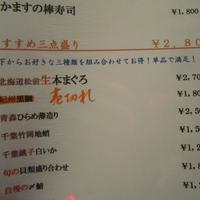 かますの棒寿司 ¥1,800
すすめ三点盛り ¥2,80
下からお好きな三種類を組み合わせてお得！単品で満足！
北海道松前生本まぐろ ¥2,70
紀州黒鯛 売切れ
青森ひらめ薄造り ¥1,80
千葉竹岡地蛸
千葉銚子白いか
旬の貝類盛り合わせ
自慢の〆鯖